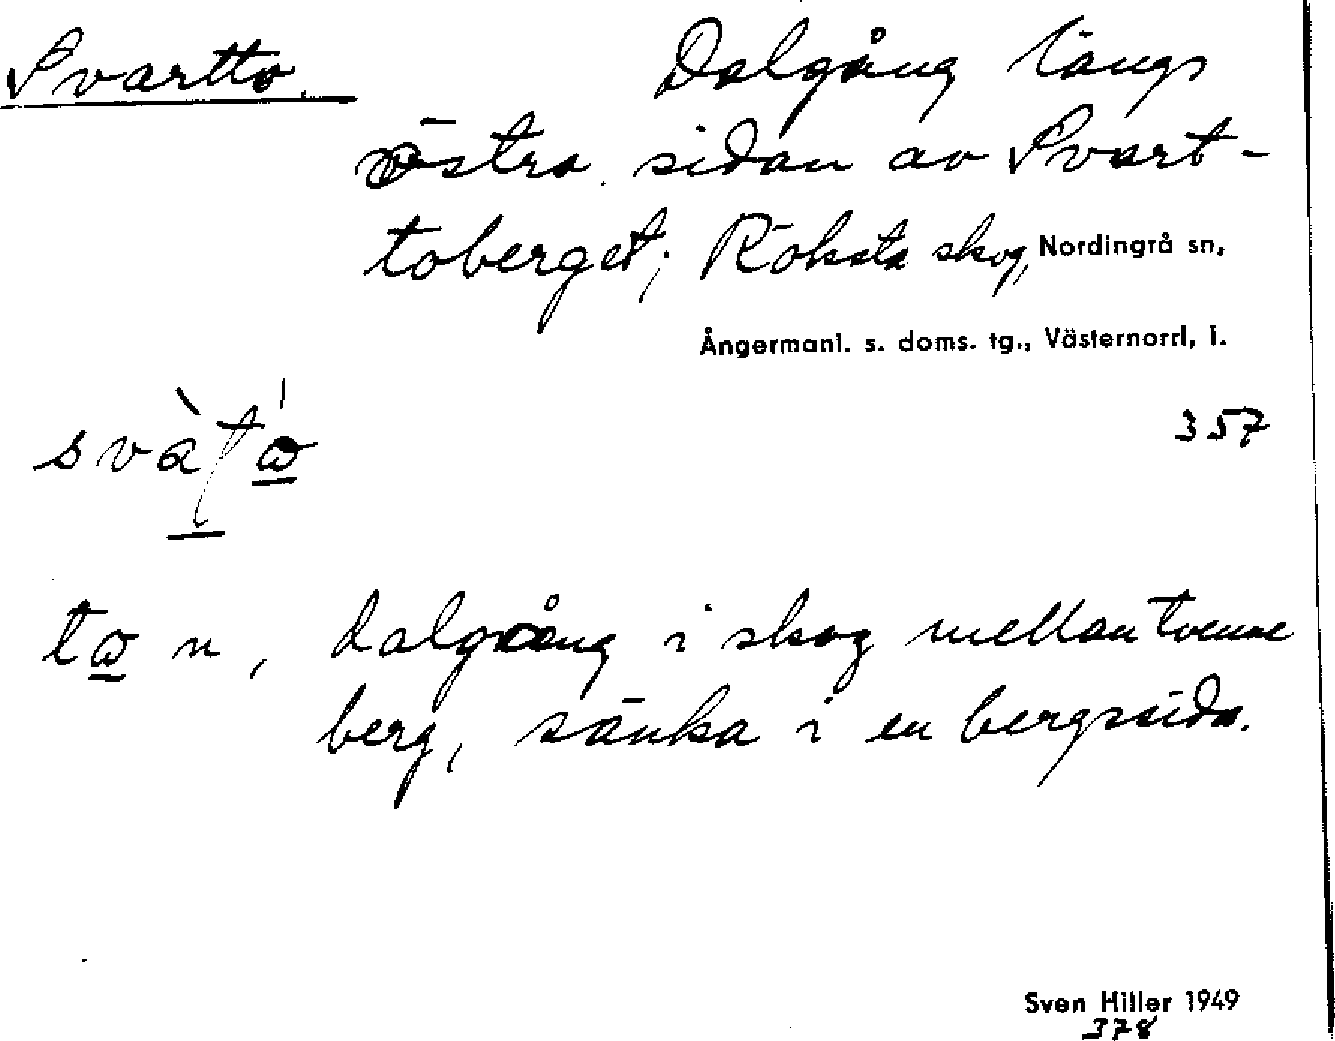 Svartto. Dalgång längs
östra sidan av Svart-
toberget; Röksta skog, Nordingrå sn,
Ångermanl. s. doms. tg., Västernorrl, l.
357
to n, dalgång i skog mellan tvenne
berg, sänka i en bergssida.
Sven Hiller 1949
378